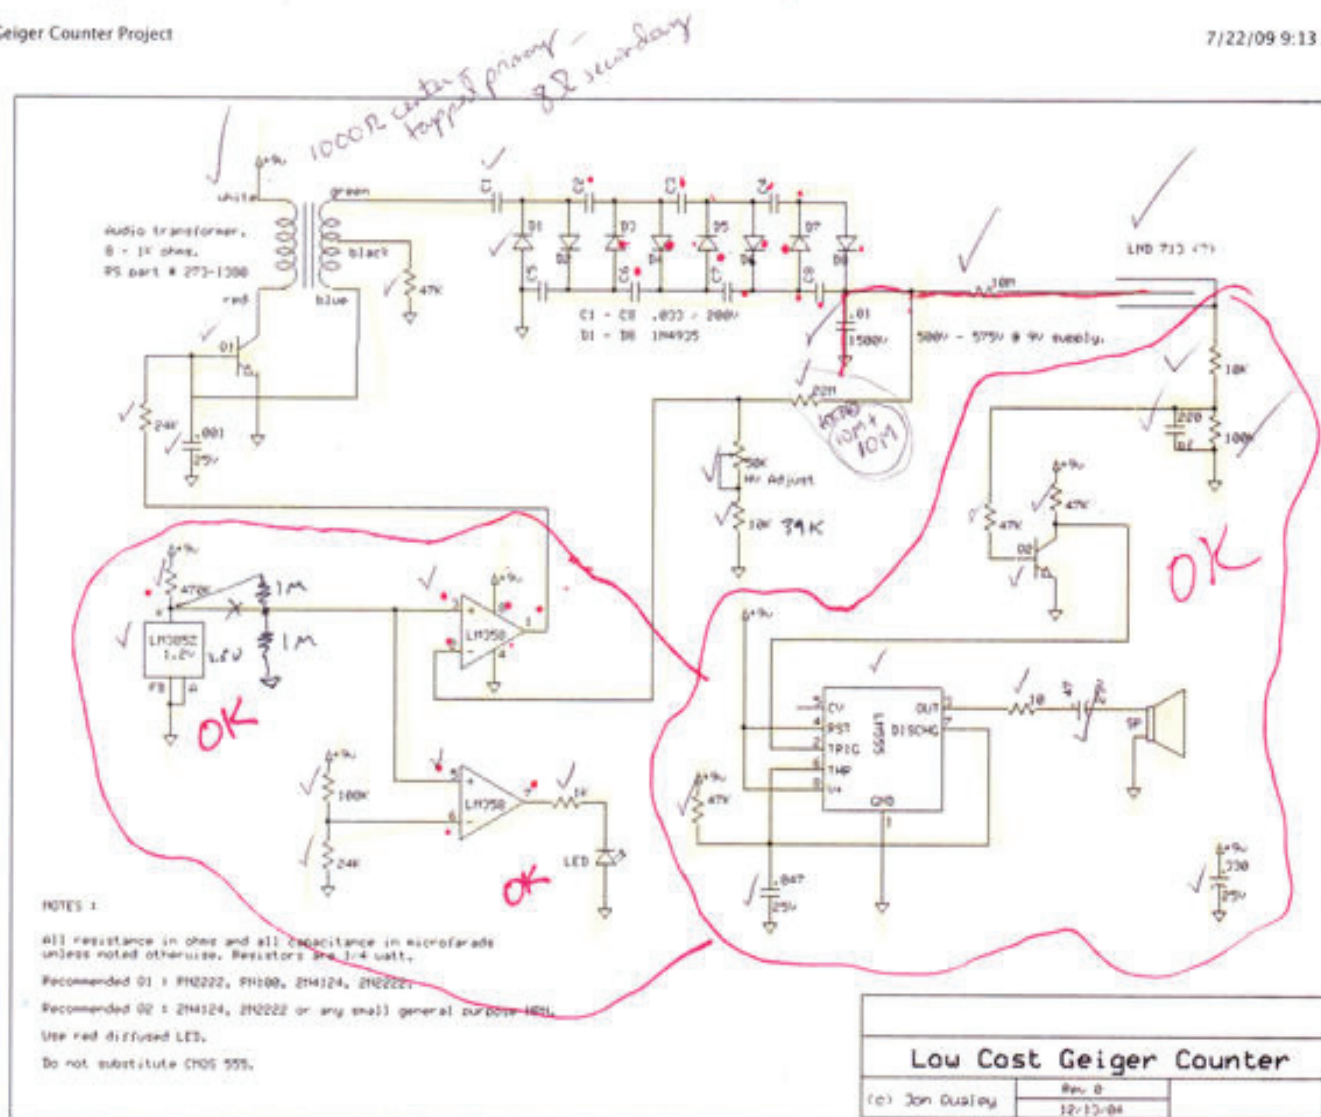 Geiger Counter Project
7/22/09 9:13
1000Ω center tapped primary -
8Ω secondary
+9v
white
green
Audio transformer.
8 - 1K ohms.
RS part # 273-1380
black
47K
red
blue
C1
C2
C3
C4
D1
D2
D3
D4
D5
D6
D7
D8
C5
C6
C7
C8
C1 - C8 .033 / 200v
D1 - D8 1N4935
LND 713 (?)
10M
.01
1500v
500v - 575v @ 9v supply.
22M
10M +
10M
Q1
24K
.001
25v
50K
HV Adjust
10K 39K
10K
220
100K
+9v
47K
47K
Q2
OK
+9v
470K
1M
1M
LM385Z
1.2v
FB A
OK
+9v
3
8
LM358
1
4
+9v
100K
24K
5
6
LM358
7
1K
LED
OK
+9v
5 CV
4 RST
2 TRIG
6 THR
8 V+
LM555
OUT 3
DISCHG 7
GND
1
10
47
25v
SP
+9v
47K
.047
25v
+9v
330
25v
NOTES :
All resistance in ohms and all capacitance in microfarads
unless noted otherwise. Resistors are 1/4 watt.
Recommended Q1 : PN2222, PN100, 2N4124, 2N2222.
Recommended Q2 : 2N4124, 2N2222 or any small general purpose NPN.
Use red diffused LED.
Do not substitute CMOS 555.
Low Cost Geiger Counter
(c) Jon Qualey
Rev 0
12/13/04